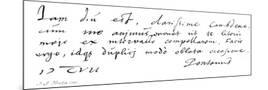 Iam diu est, clarissime Camdene,
cum me animus monet ut te literis
more ex intervallo compellarem. Facio
ergo, idqz duplici modo oblata occasione
Pontanus